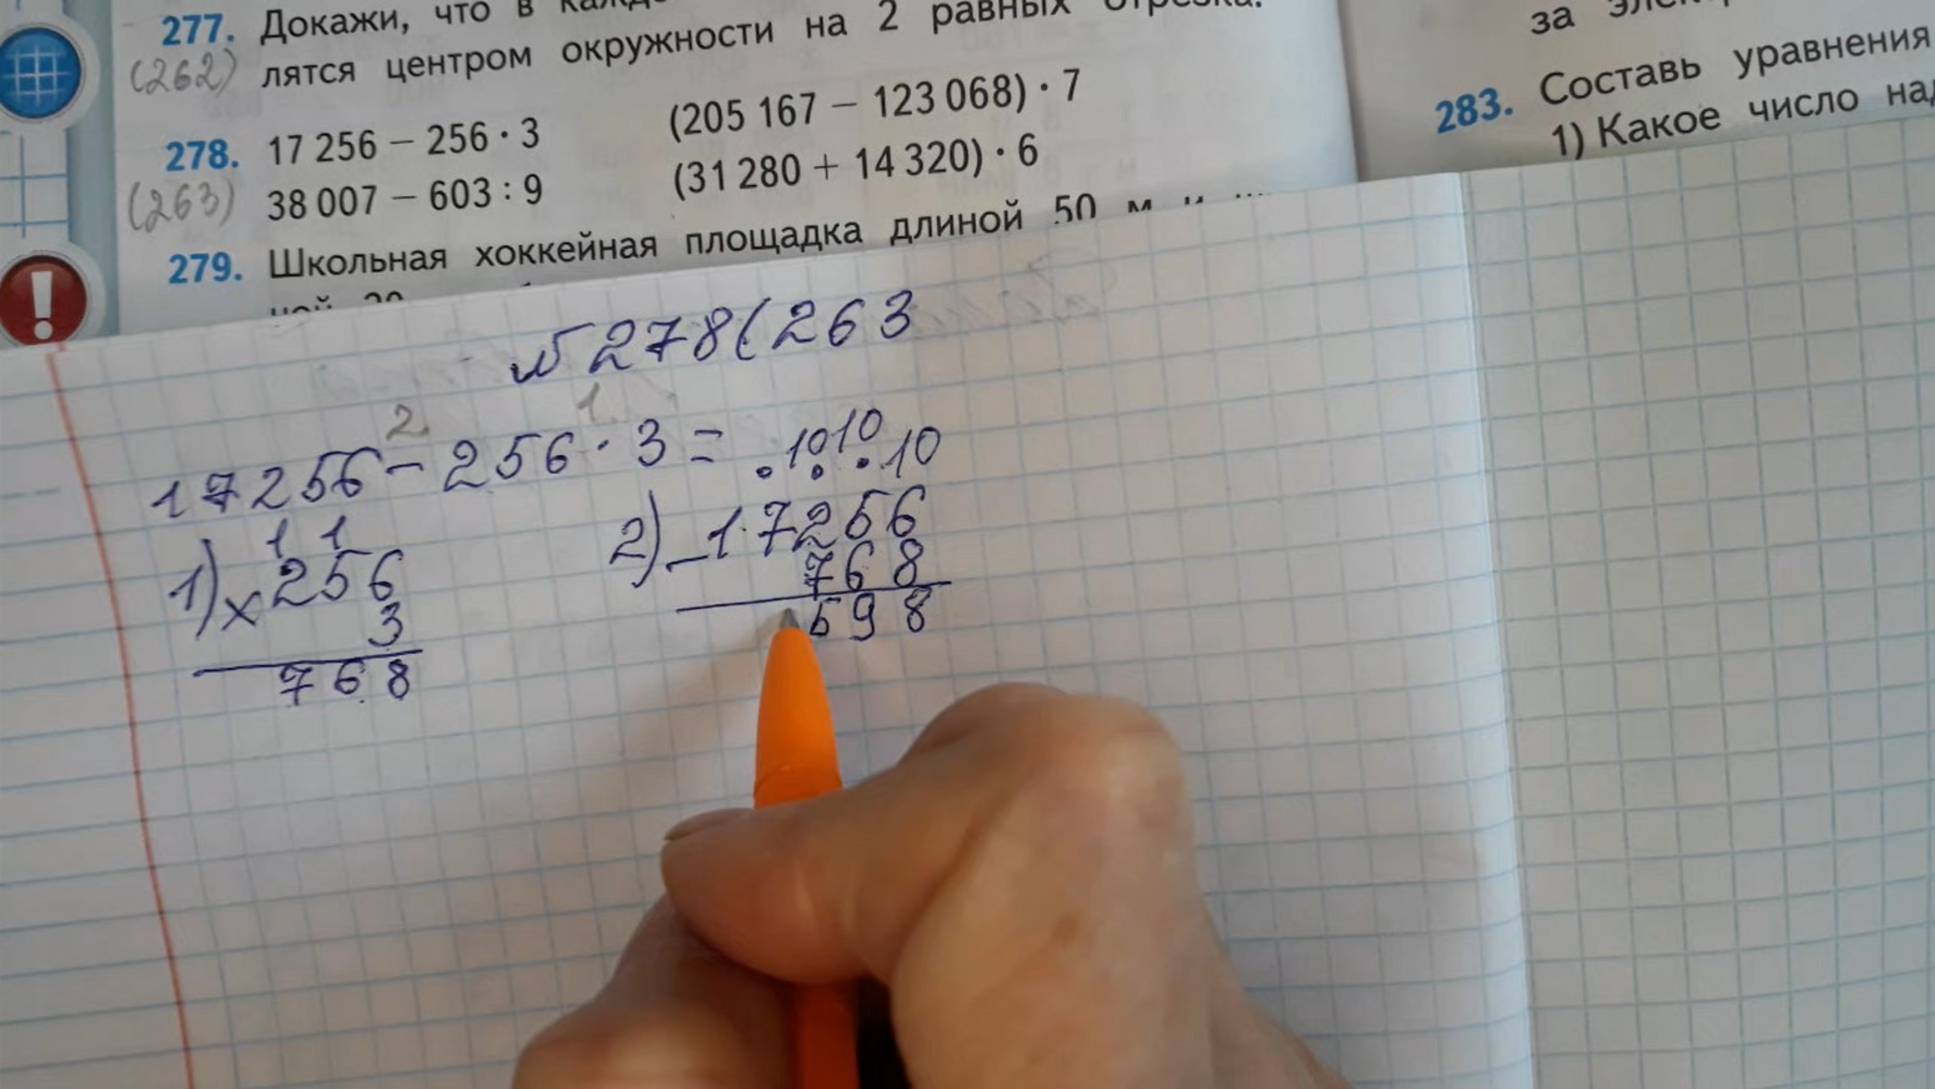 277. Докажи, что в
(262) лятся центром окружности на 2 равных отрезка.
278. 17 256 – 256 · 3 (205 167 – 123 068) · 7
(263) 38 007 – 603 : 9 (31 280 + 14 320) · 6
279. Школьная хоккейная площадка длиной 50 м и
ной
за
283. Составь уравнения
1) Какое число
№278(263
2 1
17256-256·3=
1 1
1)×256
3
768
. 10 10 10
2)-17256
768
598